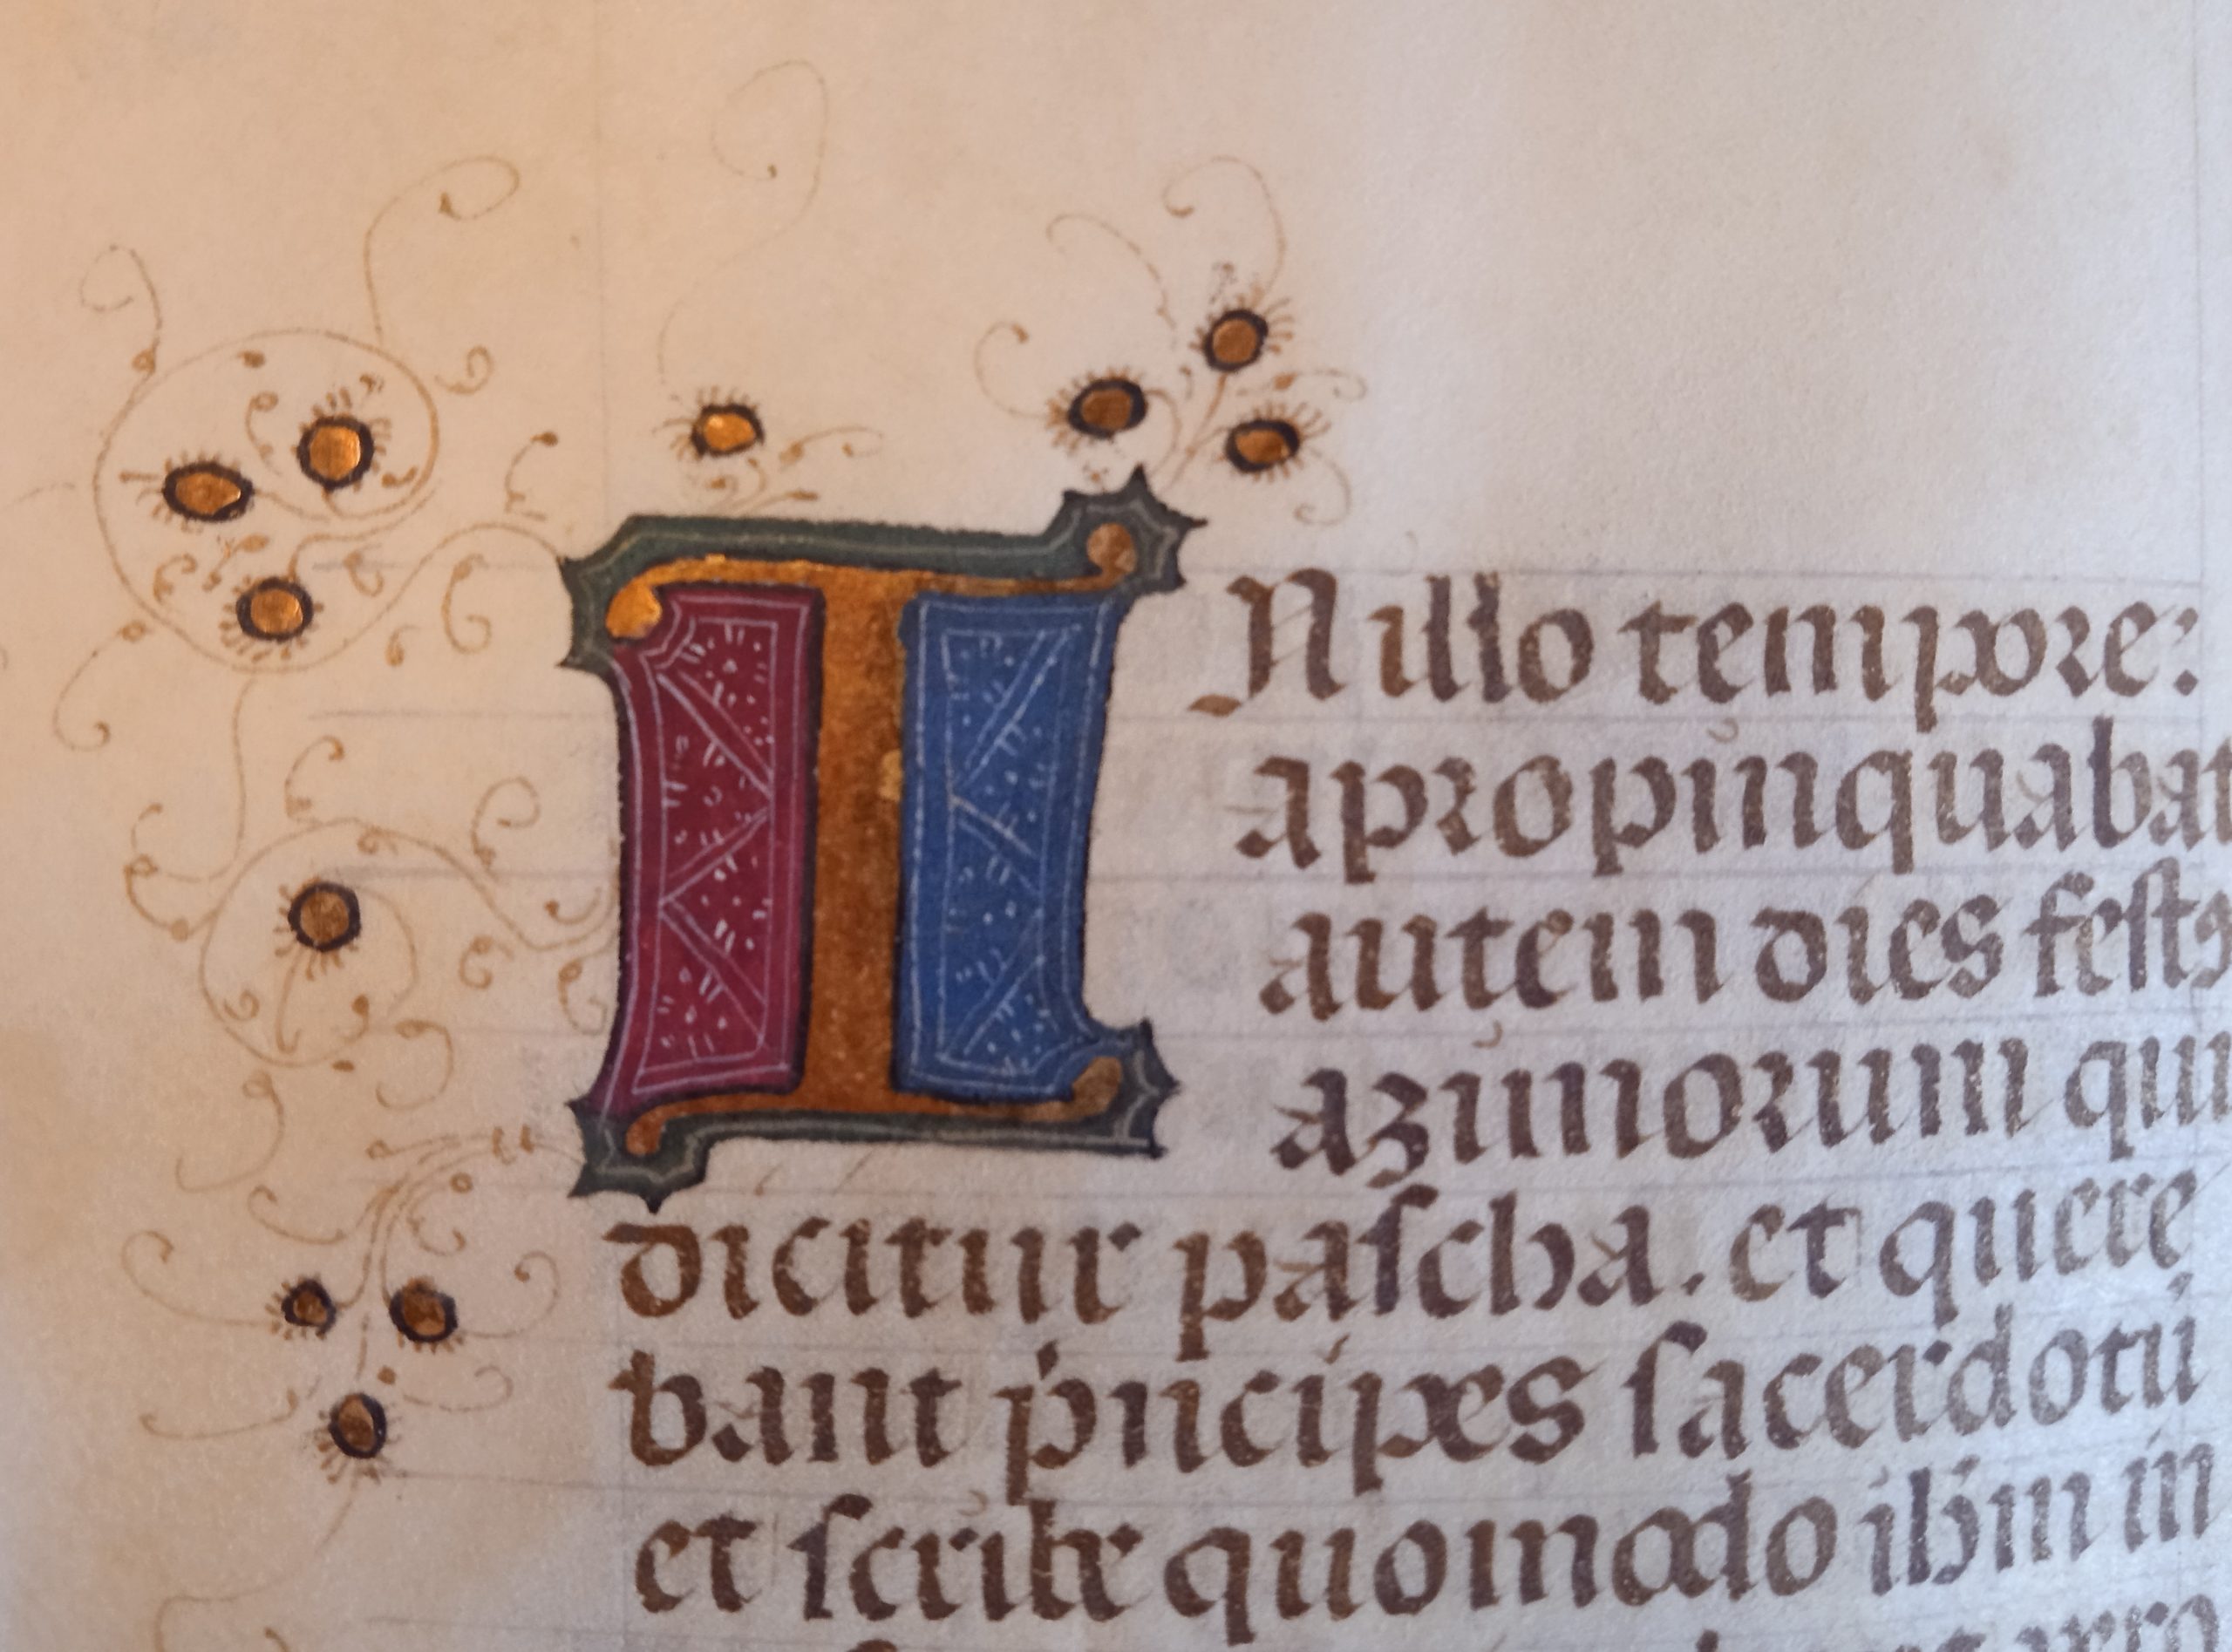 IN illo tempore:
apropinquabat
autem dies festꝯ
azimorum qui
dicitur pascha. et quere
bant pͥncipes sacerdotū
et scribe quomodo ihm̄ in